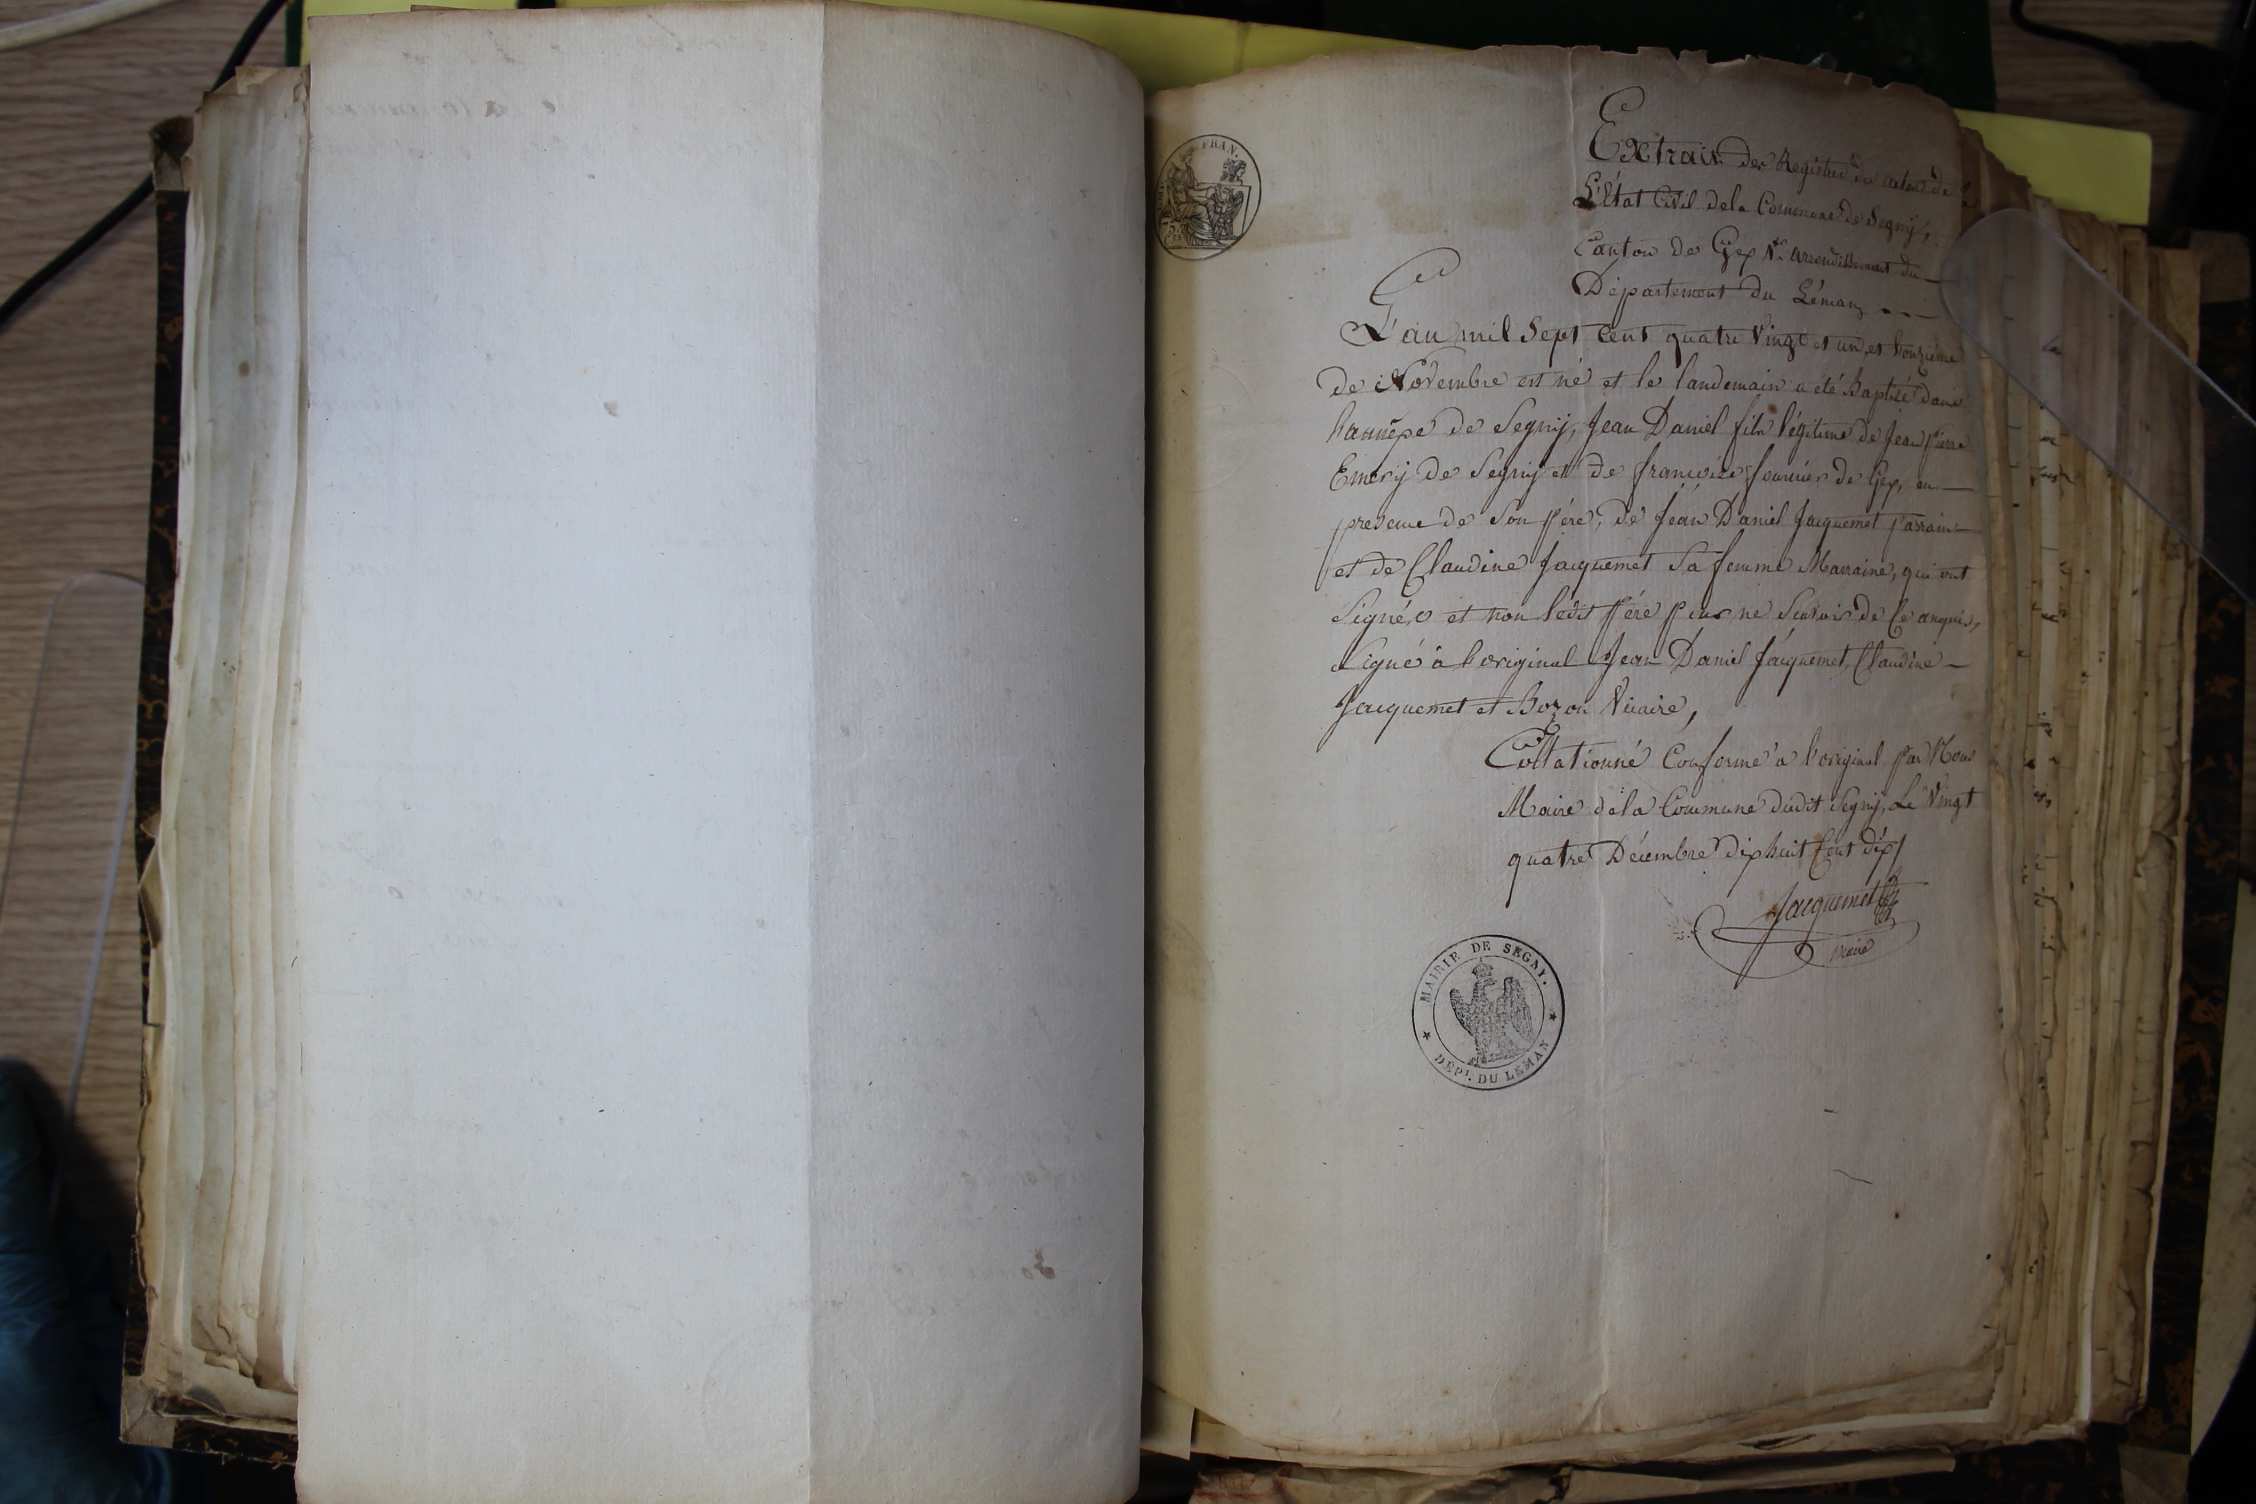 FRAN.
Extrait des Registres des actes de
L'État Civil de la Commune de Segny,
Canton de Gex Arrondissement du
Département du Léman
L'an mil Sept Cent quatre Vingt et un et l'onzieme
de Novembre est né et le landemain a été Baptisé dans
l'annèxe de Segny, Jean Daniel fils légitime de Jean Pierre
Emery de Segny et de francoise fournier de Gex, en
presence de Son Père, de Jean Daniel Jacquemet parain
et de Claudine Jacquemet Sa femme Maraine, qui ont
Signés et non ledit Père pour ne Scavoir de Ce anquis,
Signé à l'original Jean Daniel Jacquemet, Claudine
Jacquemet et Bozon Vicaire,
Collationné Conforme à l'original par Nous
Maire de la Commune dudit Segny, Le Vingt
quatre Décembre dix huit Cent dix
Jacquemet
maire
MAIRIE DE SEGNY.
DÉPt. DU LÉMAN